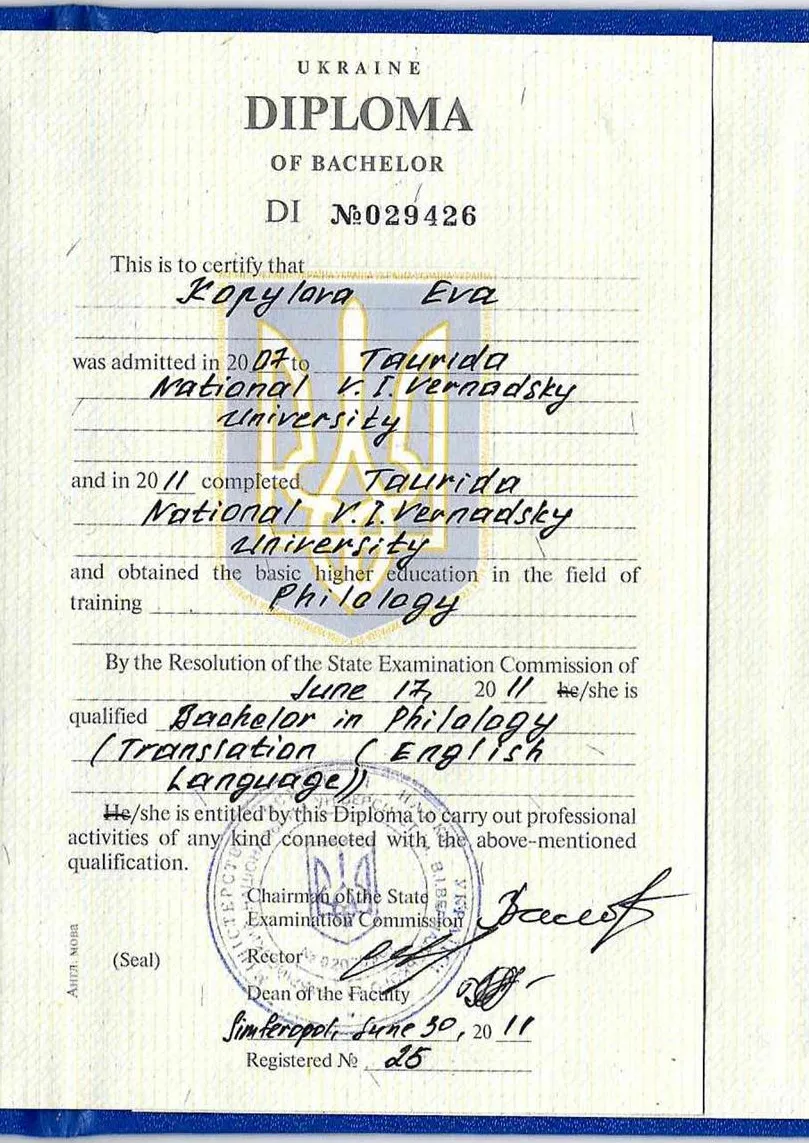 UKRAINE
DIPLOMA
OF BACHELOR
DI №029426
This is to certify that
Kopylova Eva
was admitted in 2007 to Taurida
National V.I.Vernadsky
University
and in 2011 completed Taurida
National V.I.Vernadsky
University
and obtained the basic higher education in the field of
training Philology
By the Resolution of the State Examination Commission of
June 17, 2011 he/she is
qualified Bachelor in Philology
(Translation (English
Language))
He/she is entitled by this Diploma to carry out professional
activities of any kind connected with the above-mentioned
qualification.
Chairman of the State
Examination Commission
(Seal) Rector
Dean of the Faculty
Simferopol, June 30, 2011
Registered № 25
Англ. мова